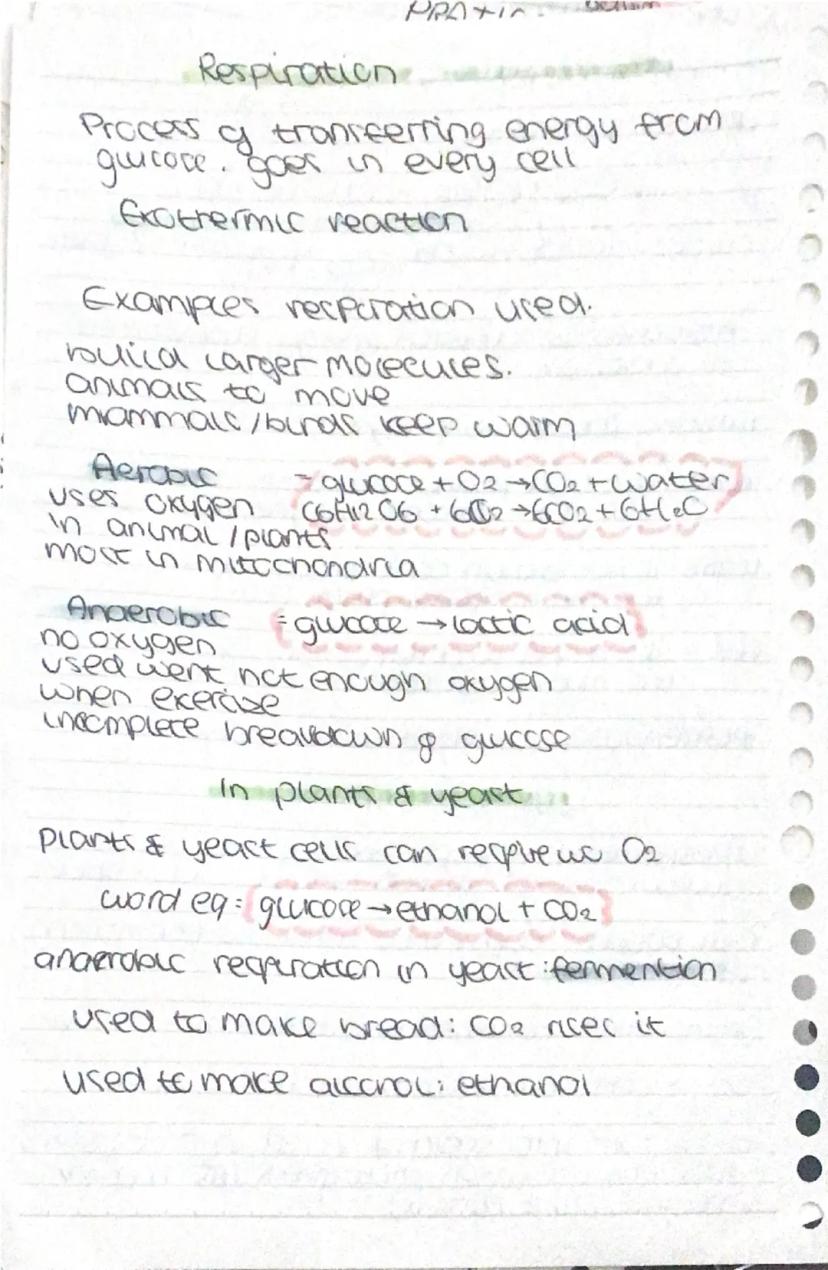 Respiration
Process of transferring energy from
glucose. goes in every cell
Exothermic reaction
Examples respiration used.
build larger molecules.
animals to move
mammals/birds keep warm
Aerobic = glucose + O2 → CO2 + water
uses oxygen C6H12O6 + 6O2 → 6CO2 + 6H2O
in animal/plants
most in mitochondria
Anaerobic = glucose → lactic acid
no oxygen
used went not enough oxygen
when exercise
incomplete breakdown of glucose
In plants & yeast
Plants & yeast cells can respire wo O2
word eq = glucose → ethanol + CO2
anaerobic respiration in yeast: fermention
used to make bread: CO2 rises it
used to make alcohol: ethanol